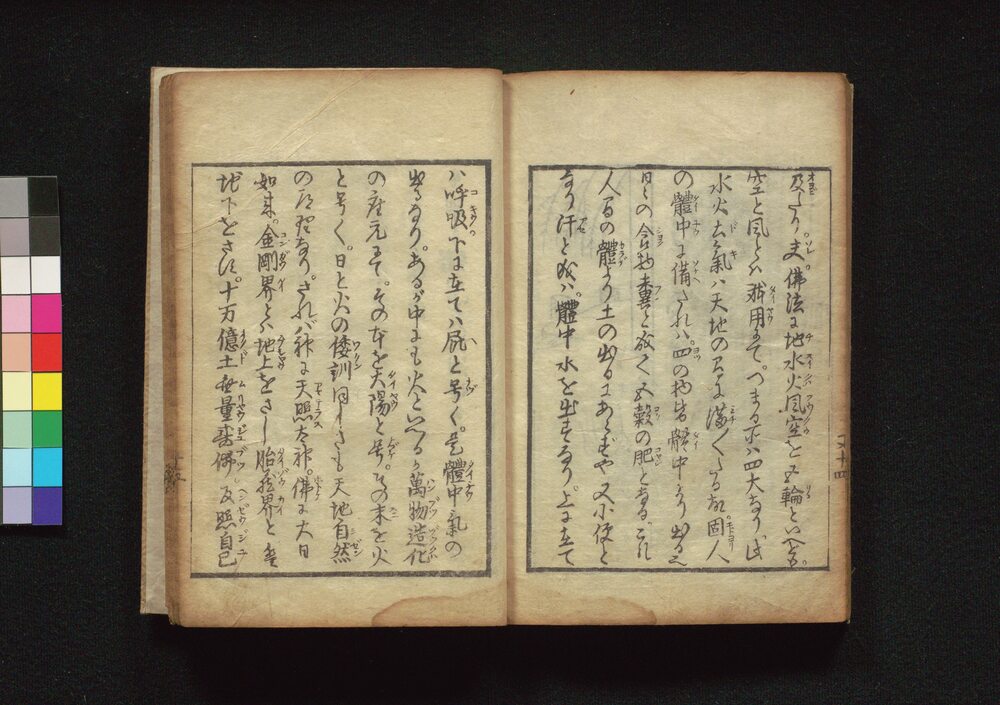 及たり。夫佛法に地水火風空を五輪といへども。
空と風とハ躰用にて。つまる所ハ四大なり此
水火土氣ハ天地の間に満〱たる故。固人
の體中に備はれハ。四の物皆體中より出る也
日〻の食物糞と成て五穀の肥となる。これ
人間の體より土の出るにあらずや又小便と
なり汗と成ハ。體中水を出すなり。上に立て
ハ呼吸下に在てハ屁と号く。是體中氣の
出るなり。あるが中にも火といへるハ萬物造化
の根元にて。その本を大陽と号。その末を火
と号く。日と火の倭訓同しきも天地自然
の道理なり。されバ神に天照太神。佛に大日
如来。金剛界とハ地上をさし胎蔵界とハ
地下をさす。十万億土無量壽佛。反照自己
五十四